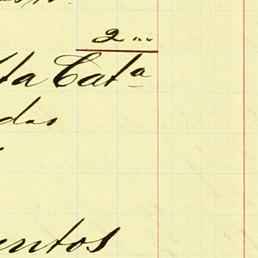 2 "" 
ta Cata
das
entos